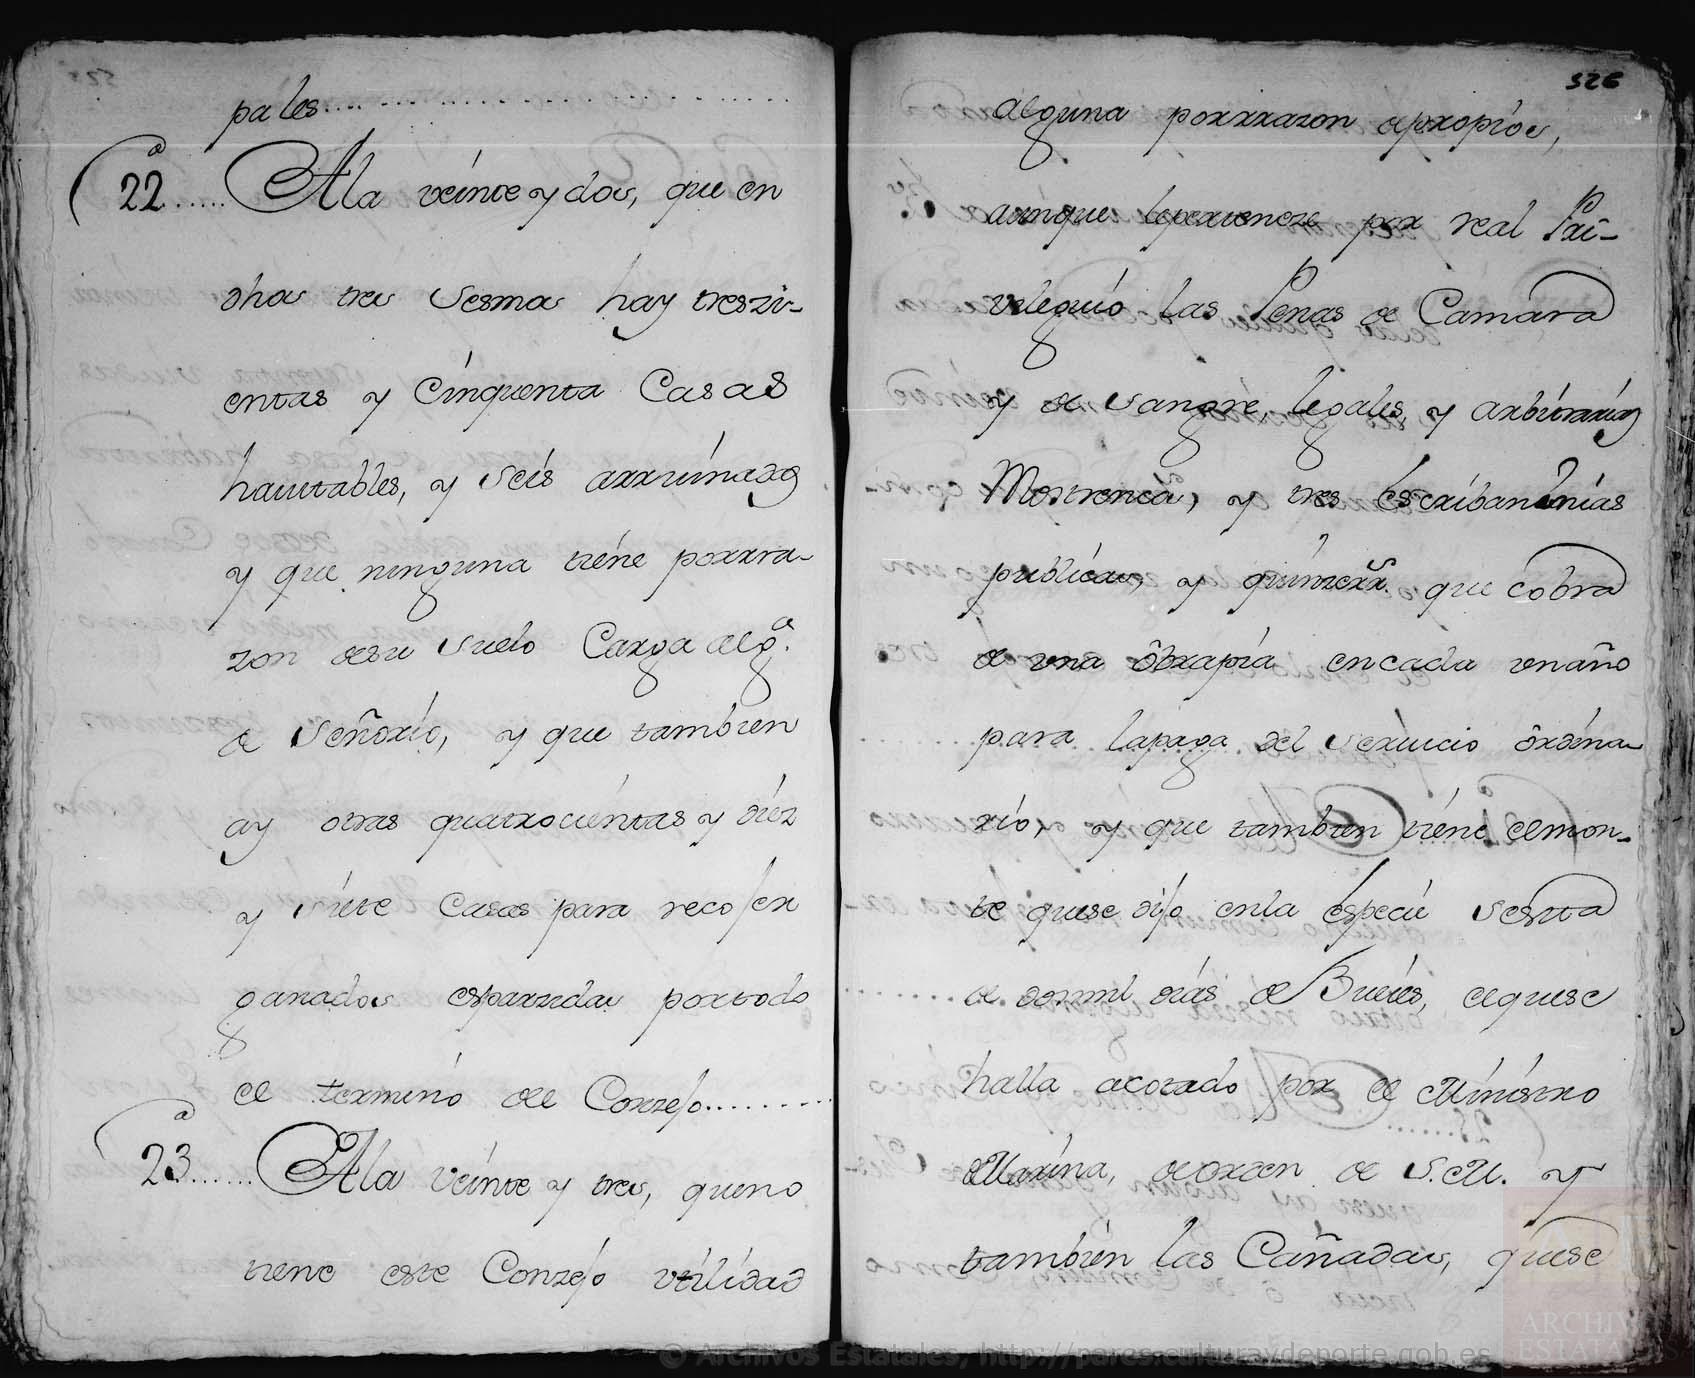 pales
22ª Ala veinte y dos, que en
dhas tres Sesmas hay treszi-
entas y Cinquenta Casas
havitables, y Seis arruinadas
y que ninguna tiene porrra-
zon desu Suelo Carga algª.
de Señorio, y que tambien
ay otras quatrocientas y diez
y Siete Casas para recojer
ganados esparzidas portodo
el termino del Conzejo
23ª Ala veinte y tres, queno
tiene este Conzejo utilidad
526
alguna porrrazon depropios,
aunque leperteneze por real Pri-
veleguio las Penas de Camara
y de Sangre, legales, y arbitrarias
Mostrencas, y tres Escribanias
publicas, y que cobra
de una obrapia encada unaño
para lapaga del Servicio ordina-
rio, y que tambien tiene elmon-
te quese dijo enla especie Sesta
de dosmil dias de Bueies, elquese
halla acotado por el Ministro
de Marina, deorden de S.M. y
tambien las Cañadas, quese
© Archivos Estatales, http://pares.culturaydeporte.gob.es
ARCHIVOS
ESTATALES